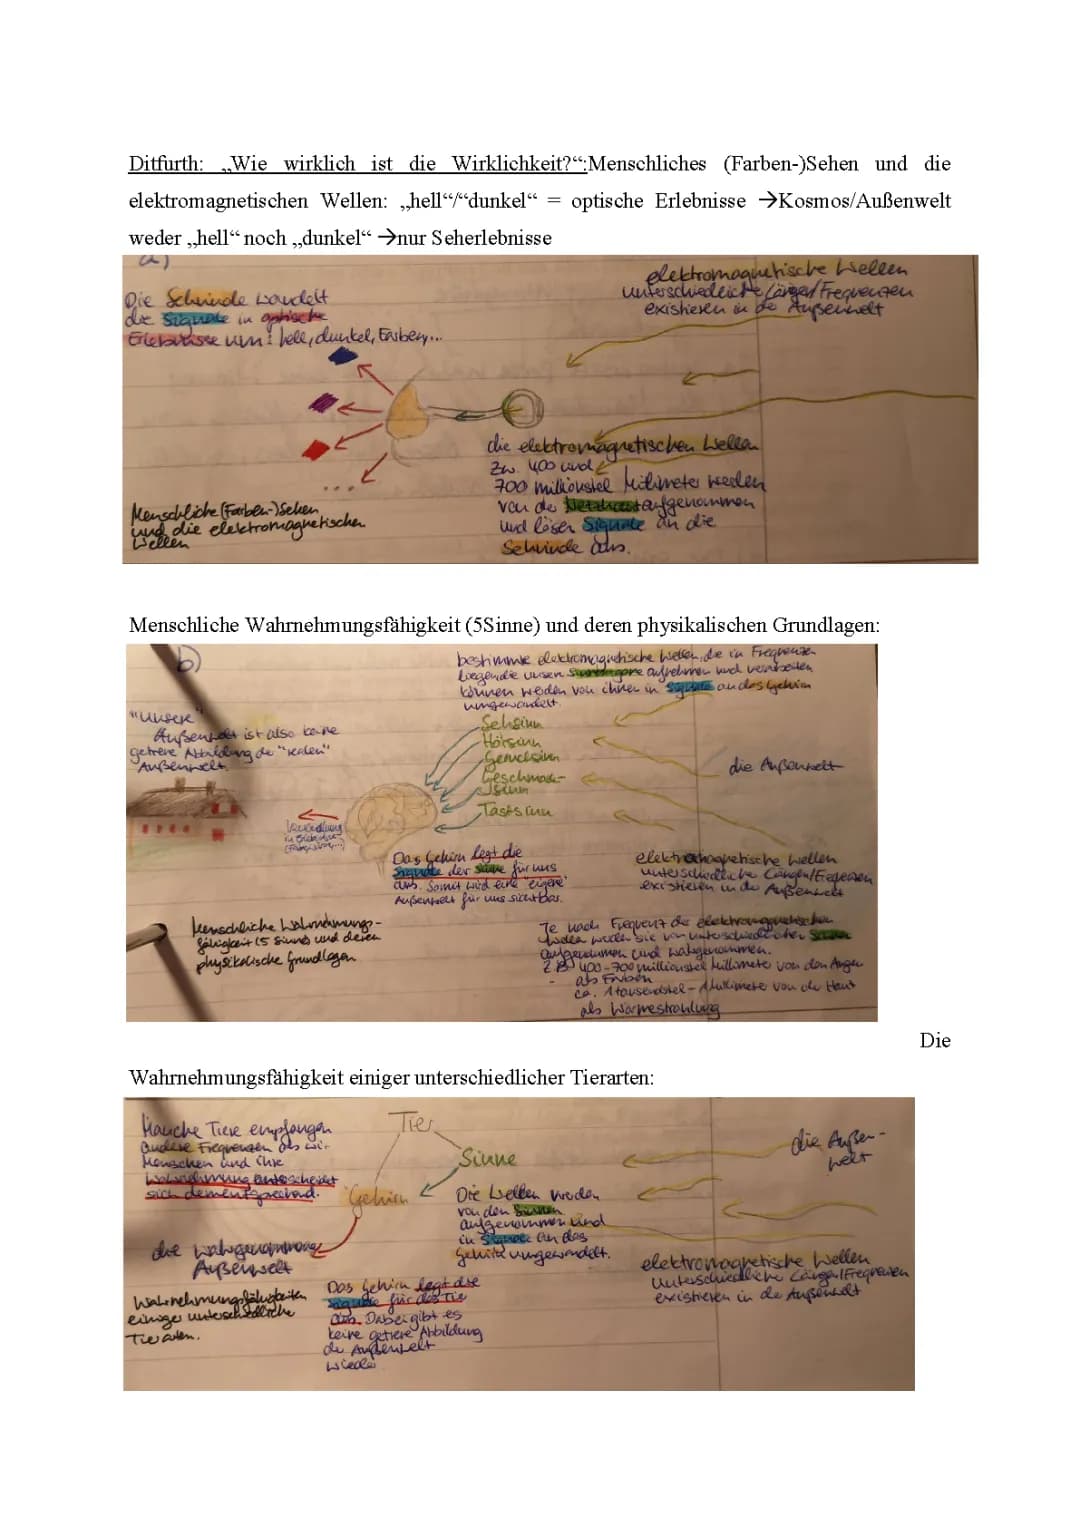 Ditfurth: „Wie wirklich ist die Wirklichkeit?“:Menschliches (Farben-)Sehen und die
elektromagnetischen Wellen: „hell“/“dunkel“ = optische Erlebnisse →Kosmos/Außenwelt
weder „hell“ noch „dunkel“ →nur Seherlebnisse
a)
Die Sehrinde wandelt
die Signale in optische
Erlebnisse um: hell, dunkel, Farben,...
elektromagnetische Wellen
unterschiedliche Länge/Frequenzen
existieren in de Außenwelt
die elektromagnetischen Wellen
zw. 400 und
700 millionstel Millimeter werden
von de Netzhaut aufgenommen
und lösen Signale an die
Sehrinde aus.
...
Menschliche (Farben-)Sehen
und die elektromagnetischen
Wellen
Menschliche Wahrnehmungsfähigkeit (5Sinne) und deren physikalischen Grundlagen:
b)
bestimmte elektromagnetische Wellen, die in Frequenzen
liegen die unsere Sinnesorgane aufnehmen und verarbeiten
können werden von ihnen in Signale an das Gehirn
umgewandelt.
"Unsere"
Außenwelt ist also keine
getreue Abbildung de "realen"
Außenwelt
Sehsinn
Hörsinn
Geruchsinn
Geschmack-
sinn
Tastsinn
die Außenwelt
Das Gehirn legt die
Signale der Sinne für uns
aus. Somit wird eine "eigene"
Außenwelt für uns sichtbar.
elektromagnetische Wellen
unterschiedliche Längen/Frequenzen
existieren in de Außenwelt
Menschliche Wahrnehmungs-
fähigkeit (5 Sinne) und deren
physikalische Grundlagen
Je nach Frequenz de elektromagnetischen
Wellen werden sie von unterschiedlichen Sinnen
aufgenommen und wahrgenommen.
z.B. 400-700 millionstel Millimeter von den Augen
- als Farben
ca. 1 tausendstel - Millimeter von der Haut
als Wärmestrahlung
Die
Wahrnehmungsfähigkeit einiger unterschiedlicher Tierarten:
Manche Tiere empfangen
andere Frequenzen als wir
Menschen und ihre
Wahrnehmung unterscheidet
sich dementsprechend.
Tier
Sinne
Gehirn
die Außen-
welt
Die Wellen werden
von den Sinnen
aufgenommen und
in Signale an das
Gehirn umgewandelt.
die wahrgenommene
Außenwelt
elektromagnetische Wellen
unterschiedliche Länge/Frequenzen
existieren in de Außenwelt
Das Gehirn legt die
Signale für das Tier
aus. Dabei gibt es
keine getreue Abbildung
de Außenwelt
wieder
Wahrnehmungsfähigkeiten
einiger unterschiedliche
Tierarten.